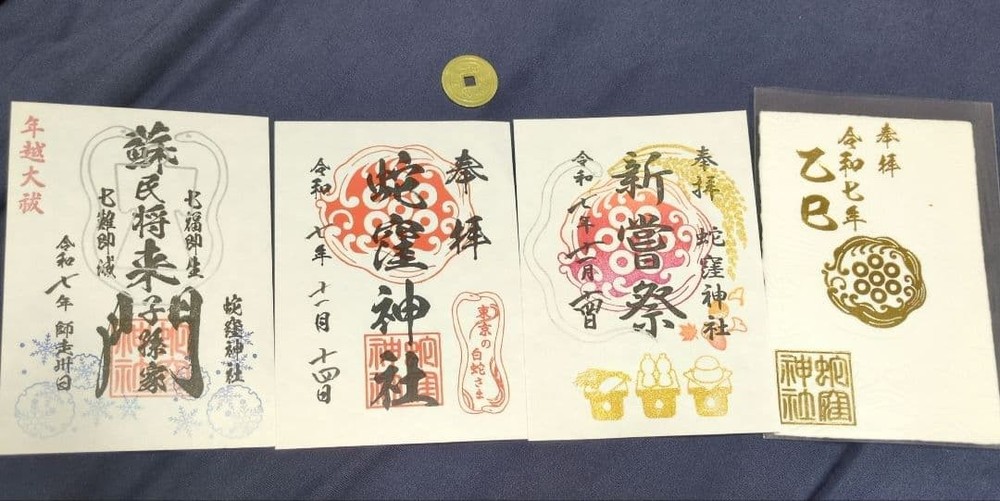 年越大祓
蘇民将来
子孫家
門
七福即生
七難即滅
蛇窪神社
令和七年 師走卅日
蛇窪
神社
奉拝
蛇窪神社
令和七年 十一月 十四日
蛇窪
神社
東京の
白蛇さま
奉拝 蛇窪神社
新嘗祭
令和七年十一月
奉拝
令和七年
乙巳
蛇窪
神社